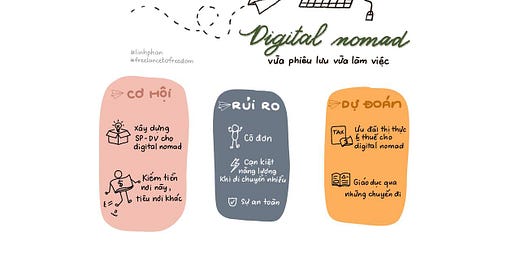 Digital nomad
vừa phiêu lưu vừa làm việc
#linhphan
#freelancetofreedom
CƠ HỘI
Xây dựng
SP-DV cho
digital nomad
Kiếm tiền
nơi này,
tiêu nơi khác
RỦI RO
Cô đơn
Cạn kiệt
năng lượng
khi di chuyển nhiều
Sự an toàn
DỰ ĐOÁN
TAX
Ưu đãi thị thực
& thuế cho
digital nomad
Giáo dục qua
những chuyến đi